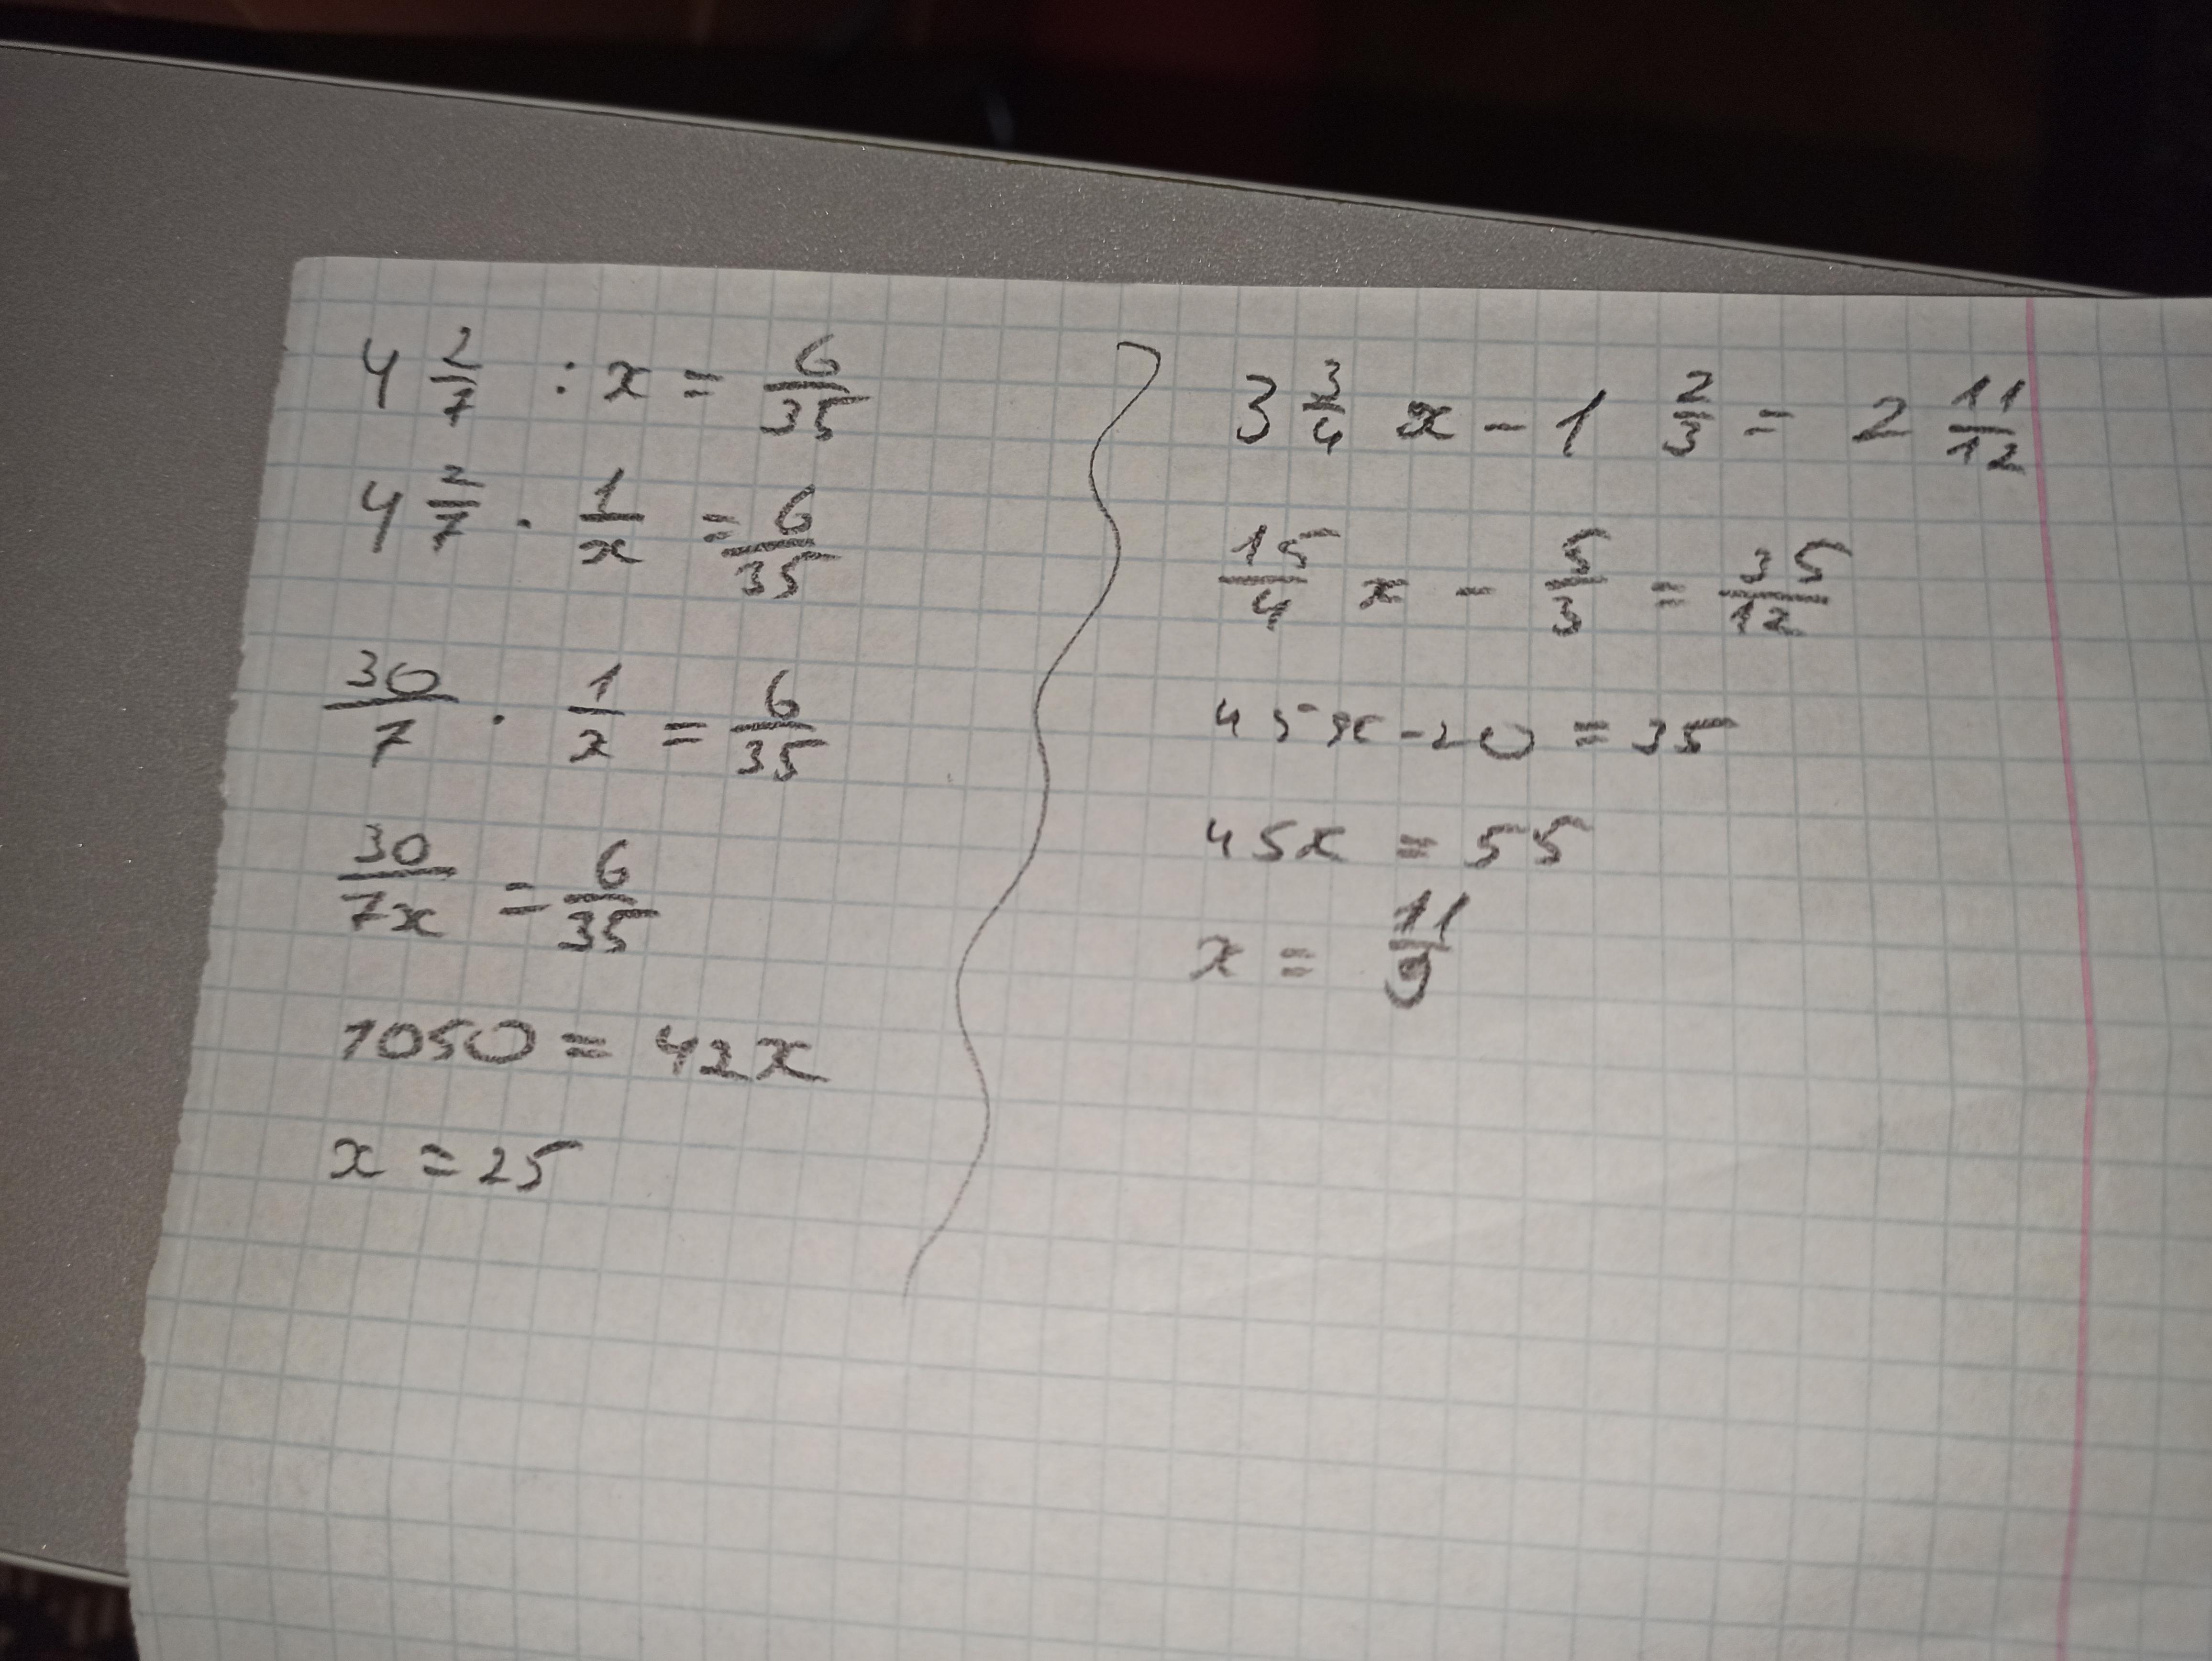 4 2/7 : x = 6/35
4 2/7 · 1/x = 6/35
30/7 · 1/x = 6/35
30/7x = 6/35
1050 = 42x
x = 25
3 3/4 x - 1 2/3 = 2 11/12
15/4 x - 5/3 = 35/12
45x - 20 = 35
45x = 55
x = 11/9